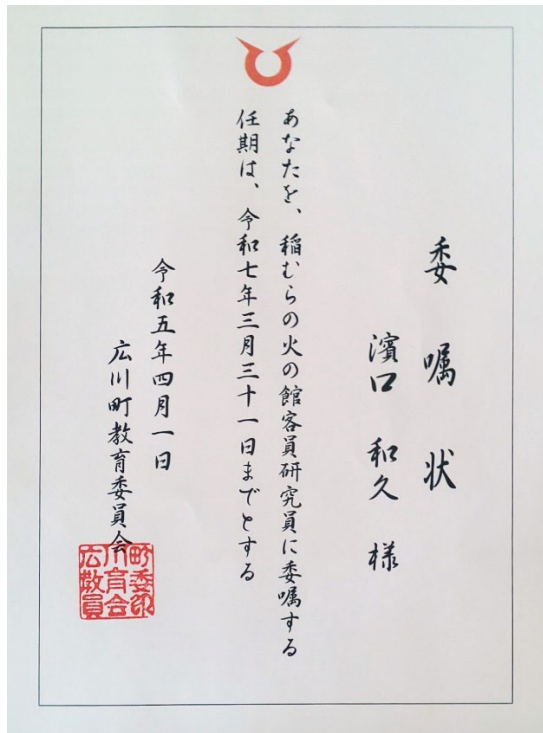 委嘱状
濱口 和久 様
あなたを、稲むらの火の館客員研究員に委嘱する
任期は、令和七年三月三十一日までとする
令和五年四月一日
広川町教育委員会
広川町教育委員会印